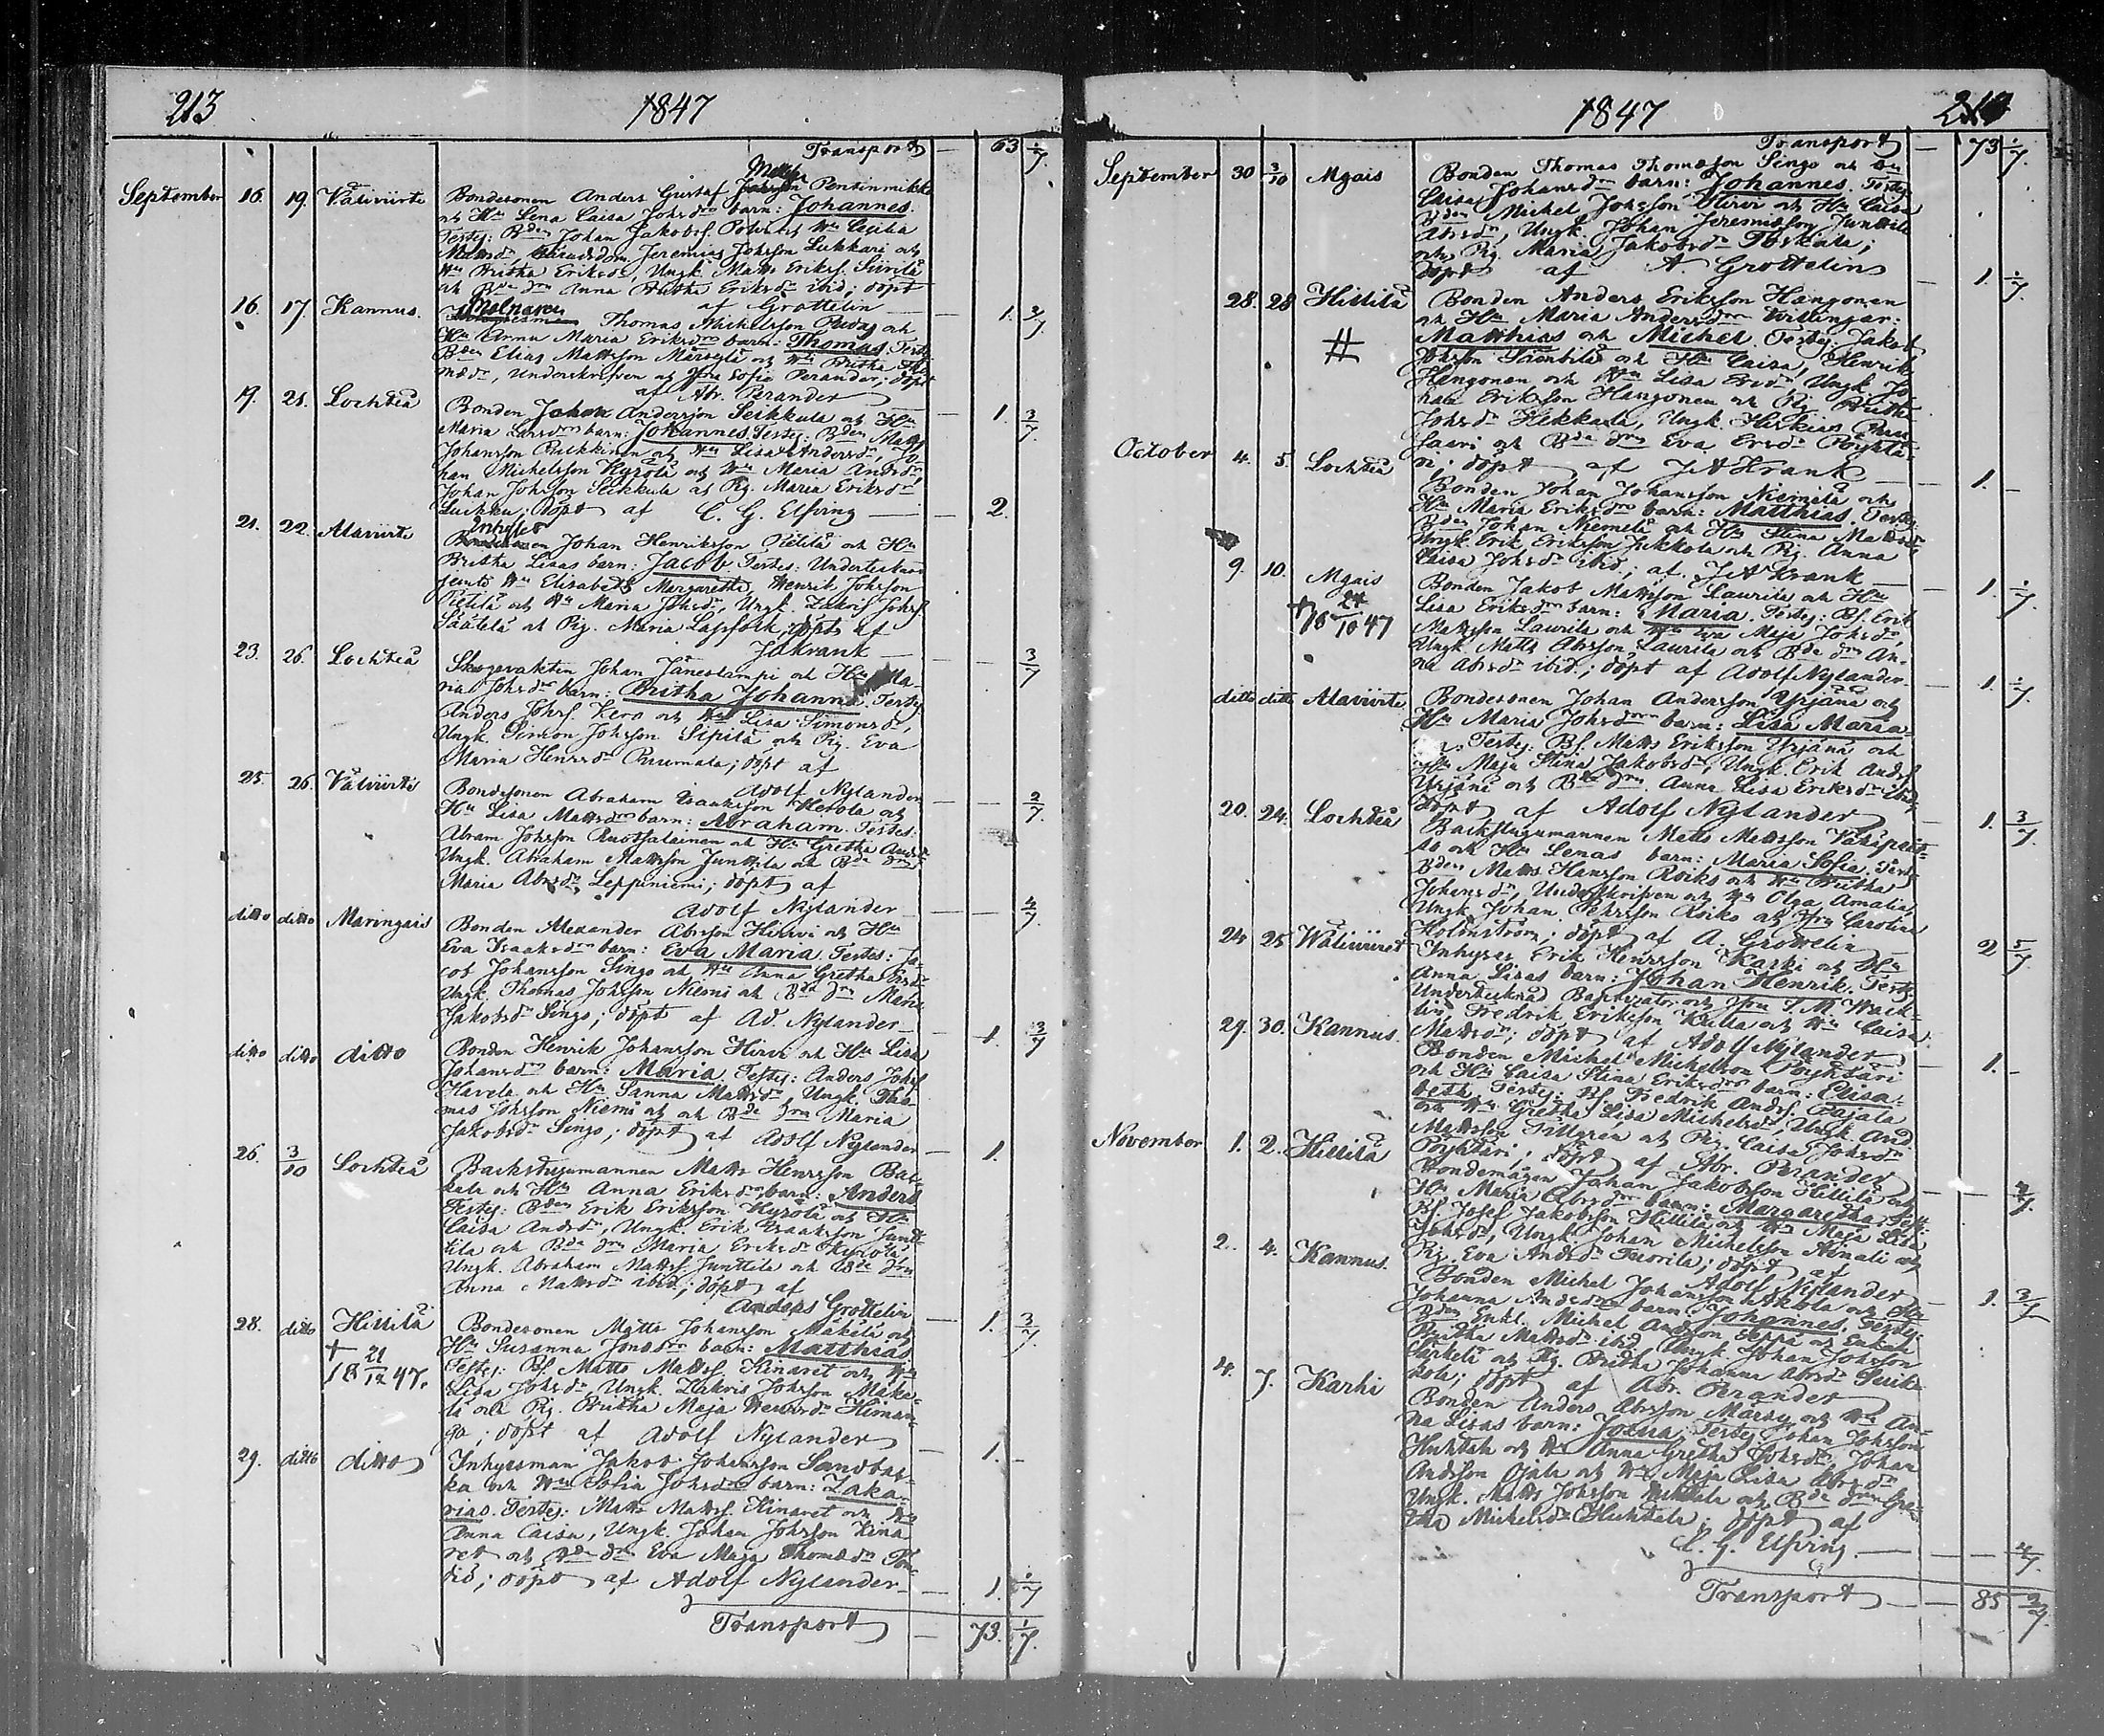 213 1847
Transport — 63 1/7
September 16. 19. Våliviirte Bondesonen Anders Gustaf Pentinmikko
och Hu Lena Caisa Johsdrs barn: Johannes.
Testes: Bden Johan Jakobs. och Hu Cecilia
Mattsdr, Jeremias Johsson Lukkari och
Hu Britha Eriksdr, Ungk. Matts Erikss. Siirilä
och Bde dr Anna Britha Eriksdr ibid; döpt
af Grottelin — 1. 2/7
16. 17. Kannus. Mølnaren Thomas Michelsson och
Hu Anna Maria Eriksdrs barn: Thomas. Testes:
Bden Elias Mattsson och Hu Britha
Underskrifven och Sofia Perander; döpt
af Abr. Perander — 1. 3/7
19. 21. Lochteå Bonden Johan Andersson Seikkula och Hu
Maria Larsdrs barn: Johannes. Testes: Bden Matts
Johansson Pulkkinen och Hu Lisa Andersdr, Jo
han Michelsson Kyrölä och Hu Maria Andrsdr,
Johan Johsson Seikkula och Pig. Maria Eriksdr
döpt af C. G. Elfving — 2.
21. 22. Alaviirte Inhyses Johan Henriksson Pietilä och Hu
Britha Lisas barn: Jacob. Testes: Undertecknad
jemte Hu Elisabeth Margaretha, Henrik Johsson
Pietilä och Hu Maria Johsdr, Ungk. Zakris Johss
Säätelä och Pig. Maria döpt af
JAKrank — 3/7
23. 26. Lochteå Skogsvakten Johan Jäneslampi och Hu Ma-
ria Johsdrs barn: Britha Johanna. Testes
Anders Johss. Kero och Hu Lisa Simonsdr,
Ungk. Simon Johsson Sipilä och Pig. Eva
Maria Henrsdr Ruumala; döpt af
Adolf Nylander — 2/7
25. 26. Våliviirte Bondesonen Abraham Isaaksson Herola och
Hu Lisa Mattsdrs barn: Abraham. Testes:
Abram Johsson Ruotsalainen och Hu Gretha
Ungk. Abraham Mattsson Junttila och Bde dr
Maria Abrsdr Leppiniemi; döpt af
Adolf Nylander — 4/7
ditto ditto Maringais Bonden Alexander Abrsson Hirvi och Hu
Eva Isaaksdrs barn: Eva Maria. Testes: Ja-
cob Johansson Singo och Hu Anna Gretha
Ungk. Thomas Johsson Niemi och Bde dr Maria
Jakobsdr Singo; döpt af Ad. Nylander — 1. 3/7
ditto ditto ditto Bonden Henrik Johansson Hirvi och Hu Lisa
Johansdrs barn: Maria. Testes: Anders Johss
Havela och Hu Sanna Mattsdr, Ungk. Tho-
mas Johsson Niemi och Bde dr Maria
Jakobsdr Singo; döpt af Adolf Nylander — 1.
26. 3/10 Lochteå Backstugumannen Matts Henrsson
och Hu Anna Eriksdrs barn: Anders
Testes: Bden Erik Eriksson Kyrölä och Hu
Caisa Andrsdr, Ungk. Erik Isaaksson Junt-
tila och Bde dr Maria Eriksdr Kyrölä
Ungk. Abraham Mattss Junttila och Bde dr
Anna Mattsdr ibid; döpt af
Anders Grottelin — 1. 3/7
28. ditto Hillilä Bondesonen Matts Johansson Mäkelä och
Hu Susanna Jonasdrs barn: Matthias
† 18 21/12 47. Testes: Bs. Matts Mattss. Kinaret och Hu
Lisa Johsdr, Ungk. Zakris Johsson Mäke-
lä och Pig. Britha Maja Henrsdr Himan-
ga; döpt af Adolf Nylander — 1. –
29. ditto ditto Inhysman Jakob Johansson Sandbac-
ka och Hu Sofia Johsdrs barn: Zaka-
rias. Testes: Matts Mattss. Kinaret och Hu
Anna Caisa, Ungk. Johan Johsson Kina
ret och Bde dr Eva Maja Thomasdr
döpt af Adolf Nylander — 1. 1/7
Transport — 73. 1/7
1847
Transport — 73 1/7
September 30 3/10 Mgais Bonden Thomas Thomasson Singo och Hu
Caisa Johansdrs barn: Johannes. Testes
Bden Michel Johsson Hirvi och Hu Caisa
Abrsdr, Ungk. Johan Jeremiasson Junttila
och Pig. Maria Jakobsdr Toskala;
döpt af A. Grottelin — 1. 1/7
28. 28 Hillilä Bonden Anders Eriksson Hangonen
och Hu Maria Andersdrs tvillingar:
# Matthias och Michel. Testes: Jakob
Johsson och Hu Caisa, Henrik
Hangonen och Hu Lisa Ersdr, Ungk. Jo-
han Eriksson Hangonen och Pig. Britha
Johsdr Hekkala, Ungk.
och Bde dr Eva Ersdr Pöyhtä-
ri; döpt af JAKrank — 1. –
October 4. 5. Lochteå Bonden Johan Johansson Niemelä och
Hu Maria Eriksdrs barn: Matthias. Testes
Bden Johan Niemelä och Hu Stina Mattsdr
Ungk. Erik Eriksson Jukkola och Pig. Anna
Caisa Johsdr ibid; af. JAKrank — 1. 1/7.
9. 10. Mgais Bonden Jakob Mattsson Laurila och Hu
† 18 24/10 47 Lisa Eriksdrs barn: Maria. Testes: Bs. Erik
Mattsson Laurila och Hu Eva Maja Johsdr,
Ungk. Matts Abrsson Laurila och Bde dr An-
na Abrsdr ibid.; döpt af Adolf Nylander. — 1. 1/7.
ditto ditto Alaviirte Bondesonen Johan Andersson Yrjänä och
Hu Maria Johsdrs barn: Lisa Maria
Testes: Bs. Matts Eriksson Yrjänä och
Hu Maja Stina Jakobsdr, Ungk. Erik Andrs
Yrjänä och Bde dr Anna Lisa Eriksdr ibid.
döpt af Adolf Nylander — 1. 3/7.
20. 24. Lochteå Backstugumannen Matts Mattsson
och Hu Lenas barn: Maria Sofia. Testes
Bden Matts Hansson Roiko och Hu Britha
Johansdr, Underskrifven och Hu Olga Amalia,
Ungk. Johan Pehrsson Roiko och Carolina
Holmström; döpt af A. Grottelin — 2 5/7
24 25 Wåliviirret Inhyses Erik Henrsson Karhi och Hu
Anna Lisas barn: Johan Henrik. Testes:
Undertecknad och T. M. Wack-
lin, Fredrik Eriksson Kulla och Hu Caisa
Mattsdr; döpt af Adolf Nylander — 1. –
29. 30. Kannus. Bonden Michel Michelsson Pöyhtäri
och Hu Caisa Stina Eriksdrs barn: Elisa-
beth. Testes: Bs. Fredrik Andrs. Rajala
och Hu Gretha Lisa Michelsdr, Ungk. And.
Mattsson och Pig. Caisa Johsdr
Pöyhtäri; döpt af Abr. Perander — 4/7.
November 1. 2. Hillilä Bondemågen Johan Jakobsson Hillilä och
Hu Maria Abrsdrs barn: Margaretha. Test:
Bs. Josef Jakobsson Hillilä och Hu Maja Lisa
Johsdr, Ungk. Johan Michelsson Ainali och
Pig. Eva Andrsdr Tuorila; döpt af
Adolf Nylander — 1. 3/7
2. 4. Kannus. Bonden Michel Johansson och Hu
Johanna Andrsdrs barn: Johannes. Testes:
Bden Enkl. Michel Andsson Seppä och Enkan
Britha Mattsdr ibid. Ungk. Johan Johsson
och Pig. Britha Johanna Abrsdr
döpt af Abr. Perander
4. 7. Karhi Bonden Anders Abrsson Märsy och Hu An-
na Lisas barn: Josua. Testes Johan Johsson
Huhtala och Hu Anna Gretha Johsdr, Johan
Andsson Ojala och Hu Maja Lisa Abrsdr
Ungk. Matts Johsson och Bde dr Gre-
tha Michelsdr Huhtala; döpt af
C. G. Elfving. — 4/7.
Transport — 85 2/7.